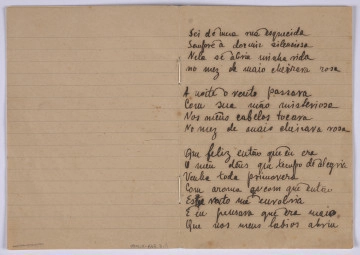 Sei de uma rua esquecida
Sempre a dormir silenciosa
Nela se abria minha vida
no mez de maio cheirava rosa
A noite o vento passava
Com sua mão misteriosa
Nos meus cabelos tocava
No mez de maio cheirava rosa
Que feliz então que eu era
O meu deus que tempo de alegria
Vinha toda primavera
Com aroma que então
Este vento me envolvia
E eu pensava que era maio,
Que nos meus labios abria